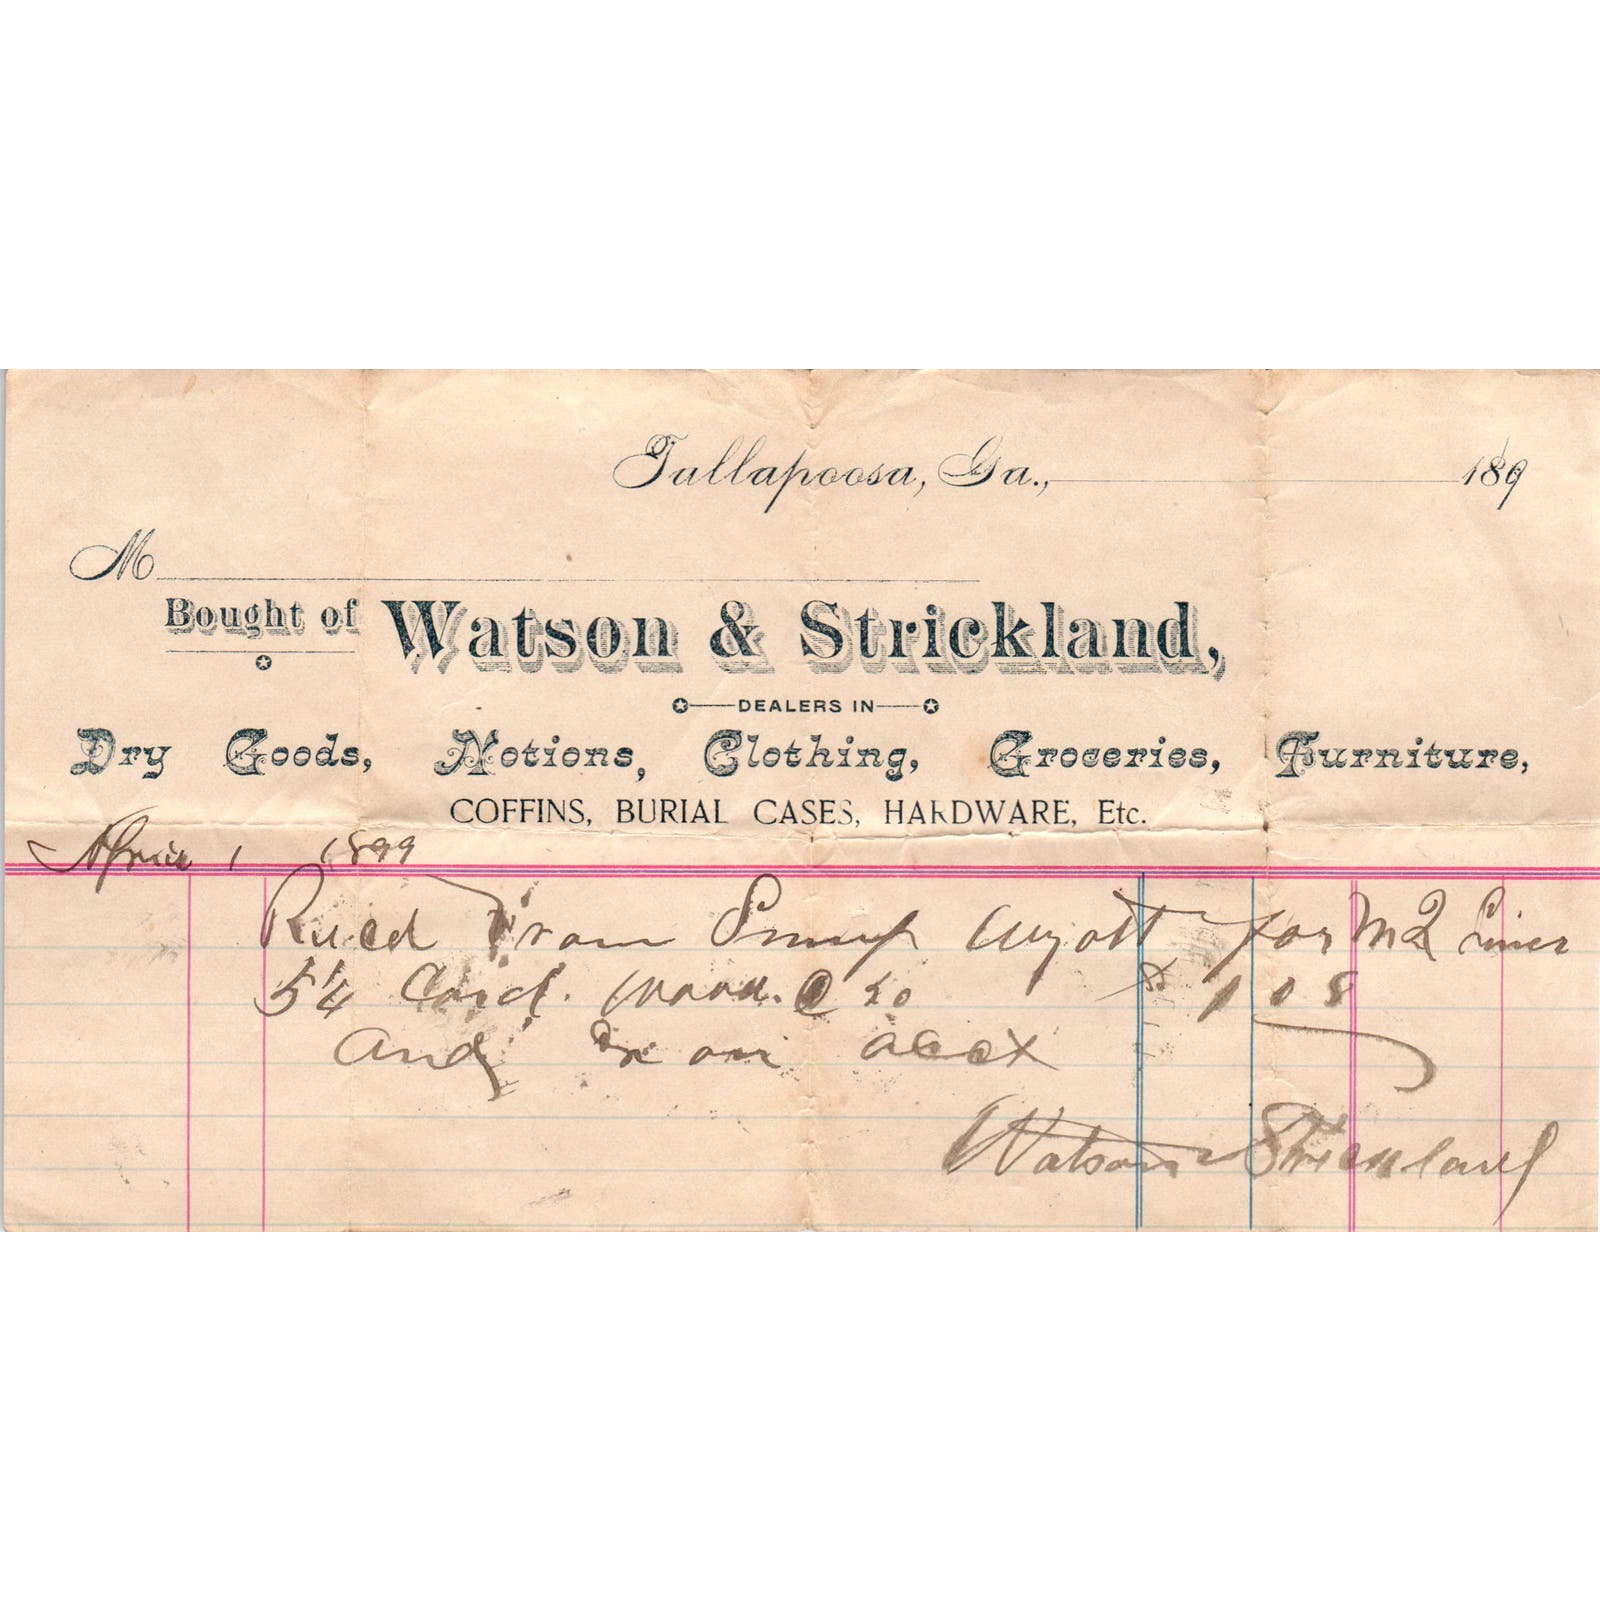 Tallapoosa, Ga., 189
M
Bought of Watson & Strickland,
DEALERS IN
Dry Goods, Notions, Clothing, Groceries, Furniture,
COFFINS, BURIAL CASES, HARDWARE, Etc.
April 1 1899
Recd From Wyatt for
5¼ Cord. Wood. @ 20 $ 1 08
and on acct
Watson Strickland